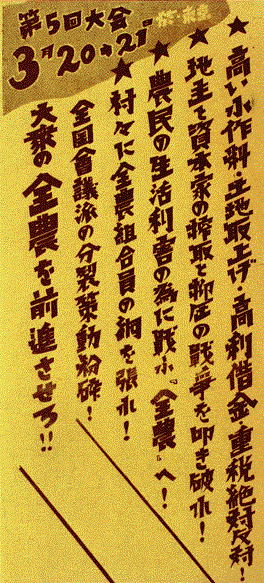 第5回大会
3月20 21
於・東京
★高い小作料・土地取上げ・高利借金・重税絶対反対!
★地主と資本家の搾取と抑圧の戦爭を叩き破れ!
★農民の生活利害の為に戦ふ『全農』へ!
★村々に全農組合員の網を張れ!
全国會議派の分裂策動粉砕!
大衆の全農を前進させろ!!